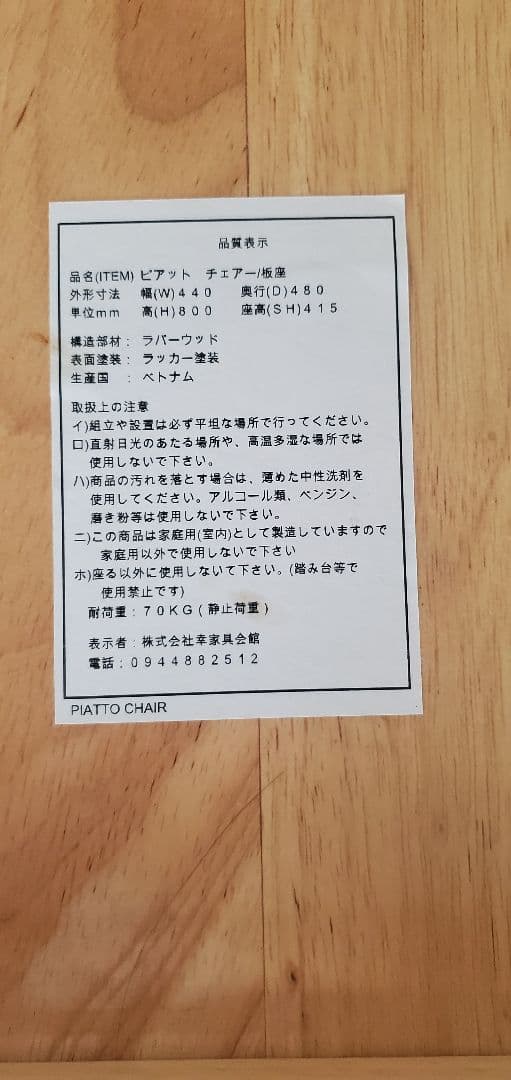 品質表示
品名(ITEM) ピアット チェアー/板座
外形寸法 幅(W)440 奥行(D)480
単位mm 高(H)800 座高(SH)415
構造部材： ラバーウッド
表面塗装： ラッカー塗装
生産国 ： ベトナム
取扱上の注意
イ)組立や設置は必ず平坦な場所で行ってください。
ロ)直射日光のあたる場所や、高温多湿な場所では
使用しないで下さい。
ハ)商品の汚れを落とす場合は、薄めた中性洗剤を
使用してください。アルコール類、ベンジン、
磨き粉等は使用しないで下さい。
ニ)この商品は家庭用(室内)として製造していますので
家庭用以外で使用しないで下さい
ホ)座る以外に使用しないて下さい。(踏み台等で
使用禁止です)
耐荷重：70KG(静止荷重)
表示者：株式会社幸家具会館
電話：0944882512
PIATTO CHAIR